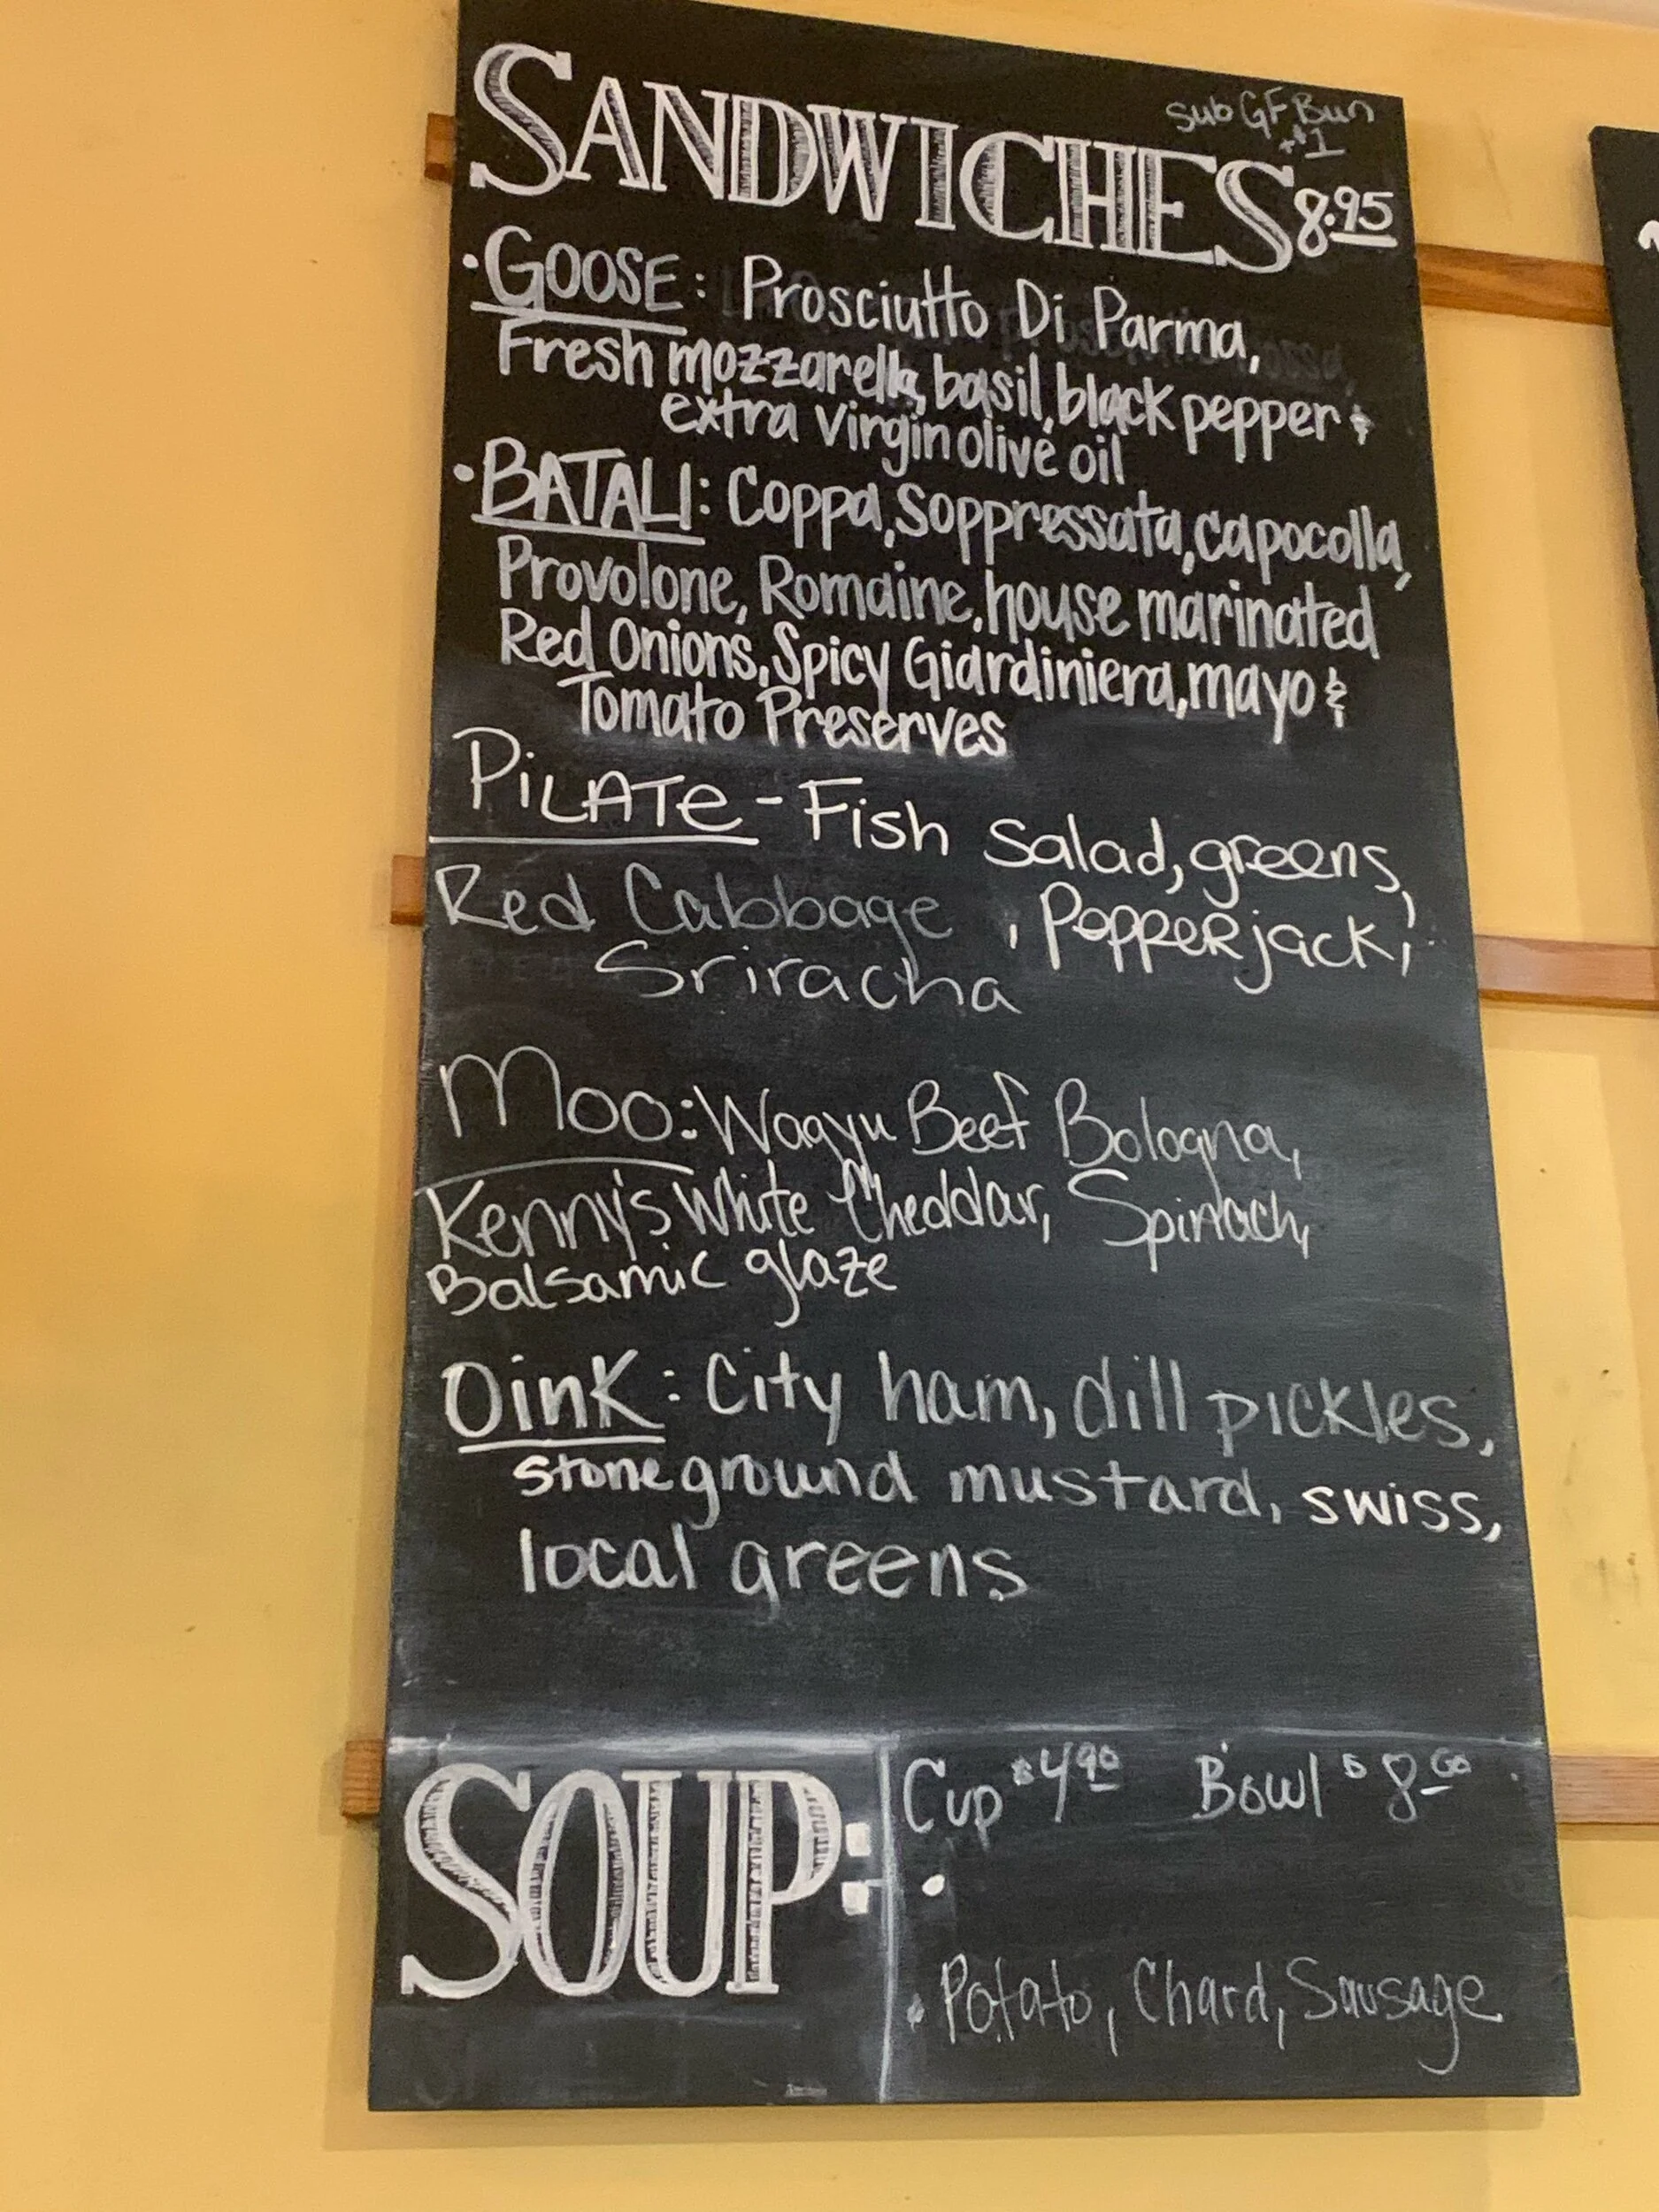 Sub GF Bun
+$1
SANDWICHES 8.95
·GOOSE: Prosciutto Di Parma,
Fresh mozzarella, basil, black pepper &
extra virgin olive oil
·BATALI: Coppa, Soppressata, capocolla,
Provolone, Romaine, house marinated
Red Onions, Spicy Giardiniera, mayo &
Tomato Preserves
PiLATe - Fish Salad, greens,
Red Cabbage, PePPeRjack,
Sriracha
Moo: Wagyu Beef Bologna,
Kenny's White Cheddar, Spinach,
Balsamic glaze
OinK: City ham, dill pickles,
stoneground mustard, swiss,
local greens
SOUP:
Cup $4.90 Bowl $8.00
·
· Potato, Chard, Sausage